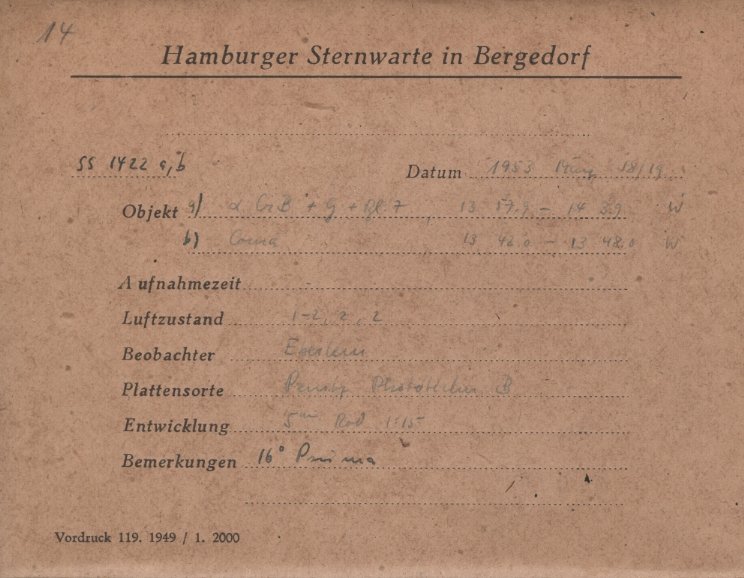 14
Hamburger Sternwarte in Bergedorf
SS 1422 a,b
Datum 1953 18/19
Objekt a) α CrB + G + 13 57.9 – 14 W
b) Coma 13 42.0 – 13 48.0 W
Aufnahmezeit -
Luftzustand 1-2, 2, 2
Beobachter
Plattensorte B
Entwicklung 5 min Rod 1:15
Bemerkungen 16° Prisma
Vordruck 119. 1949 / 1. 2000